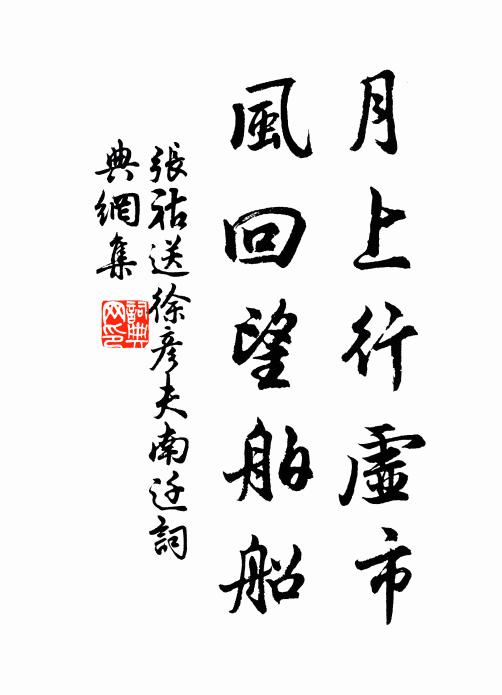 月上行虛市
風回望舶船
張祜送徐彥夫南迁詞
典網集
詞典
网印